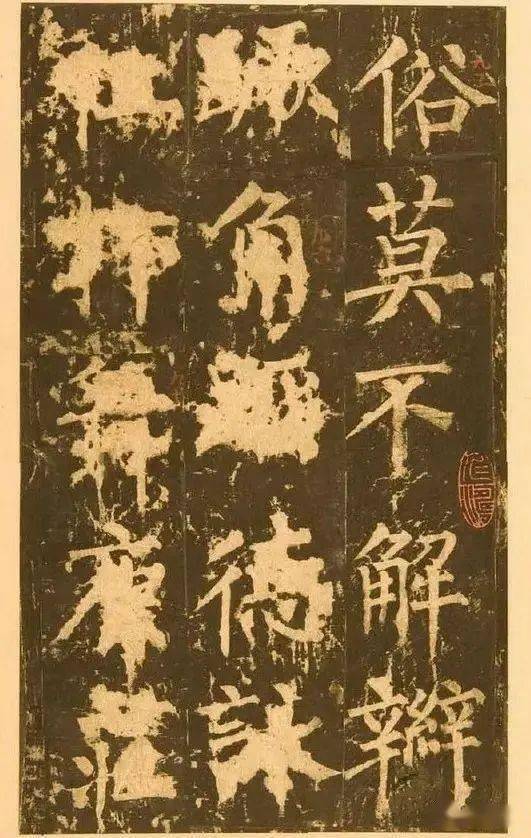 俗莫不解辮
蹶角德詠
抃舞康莊